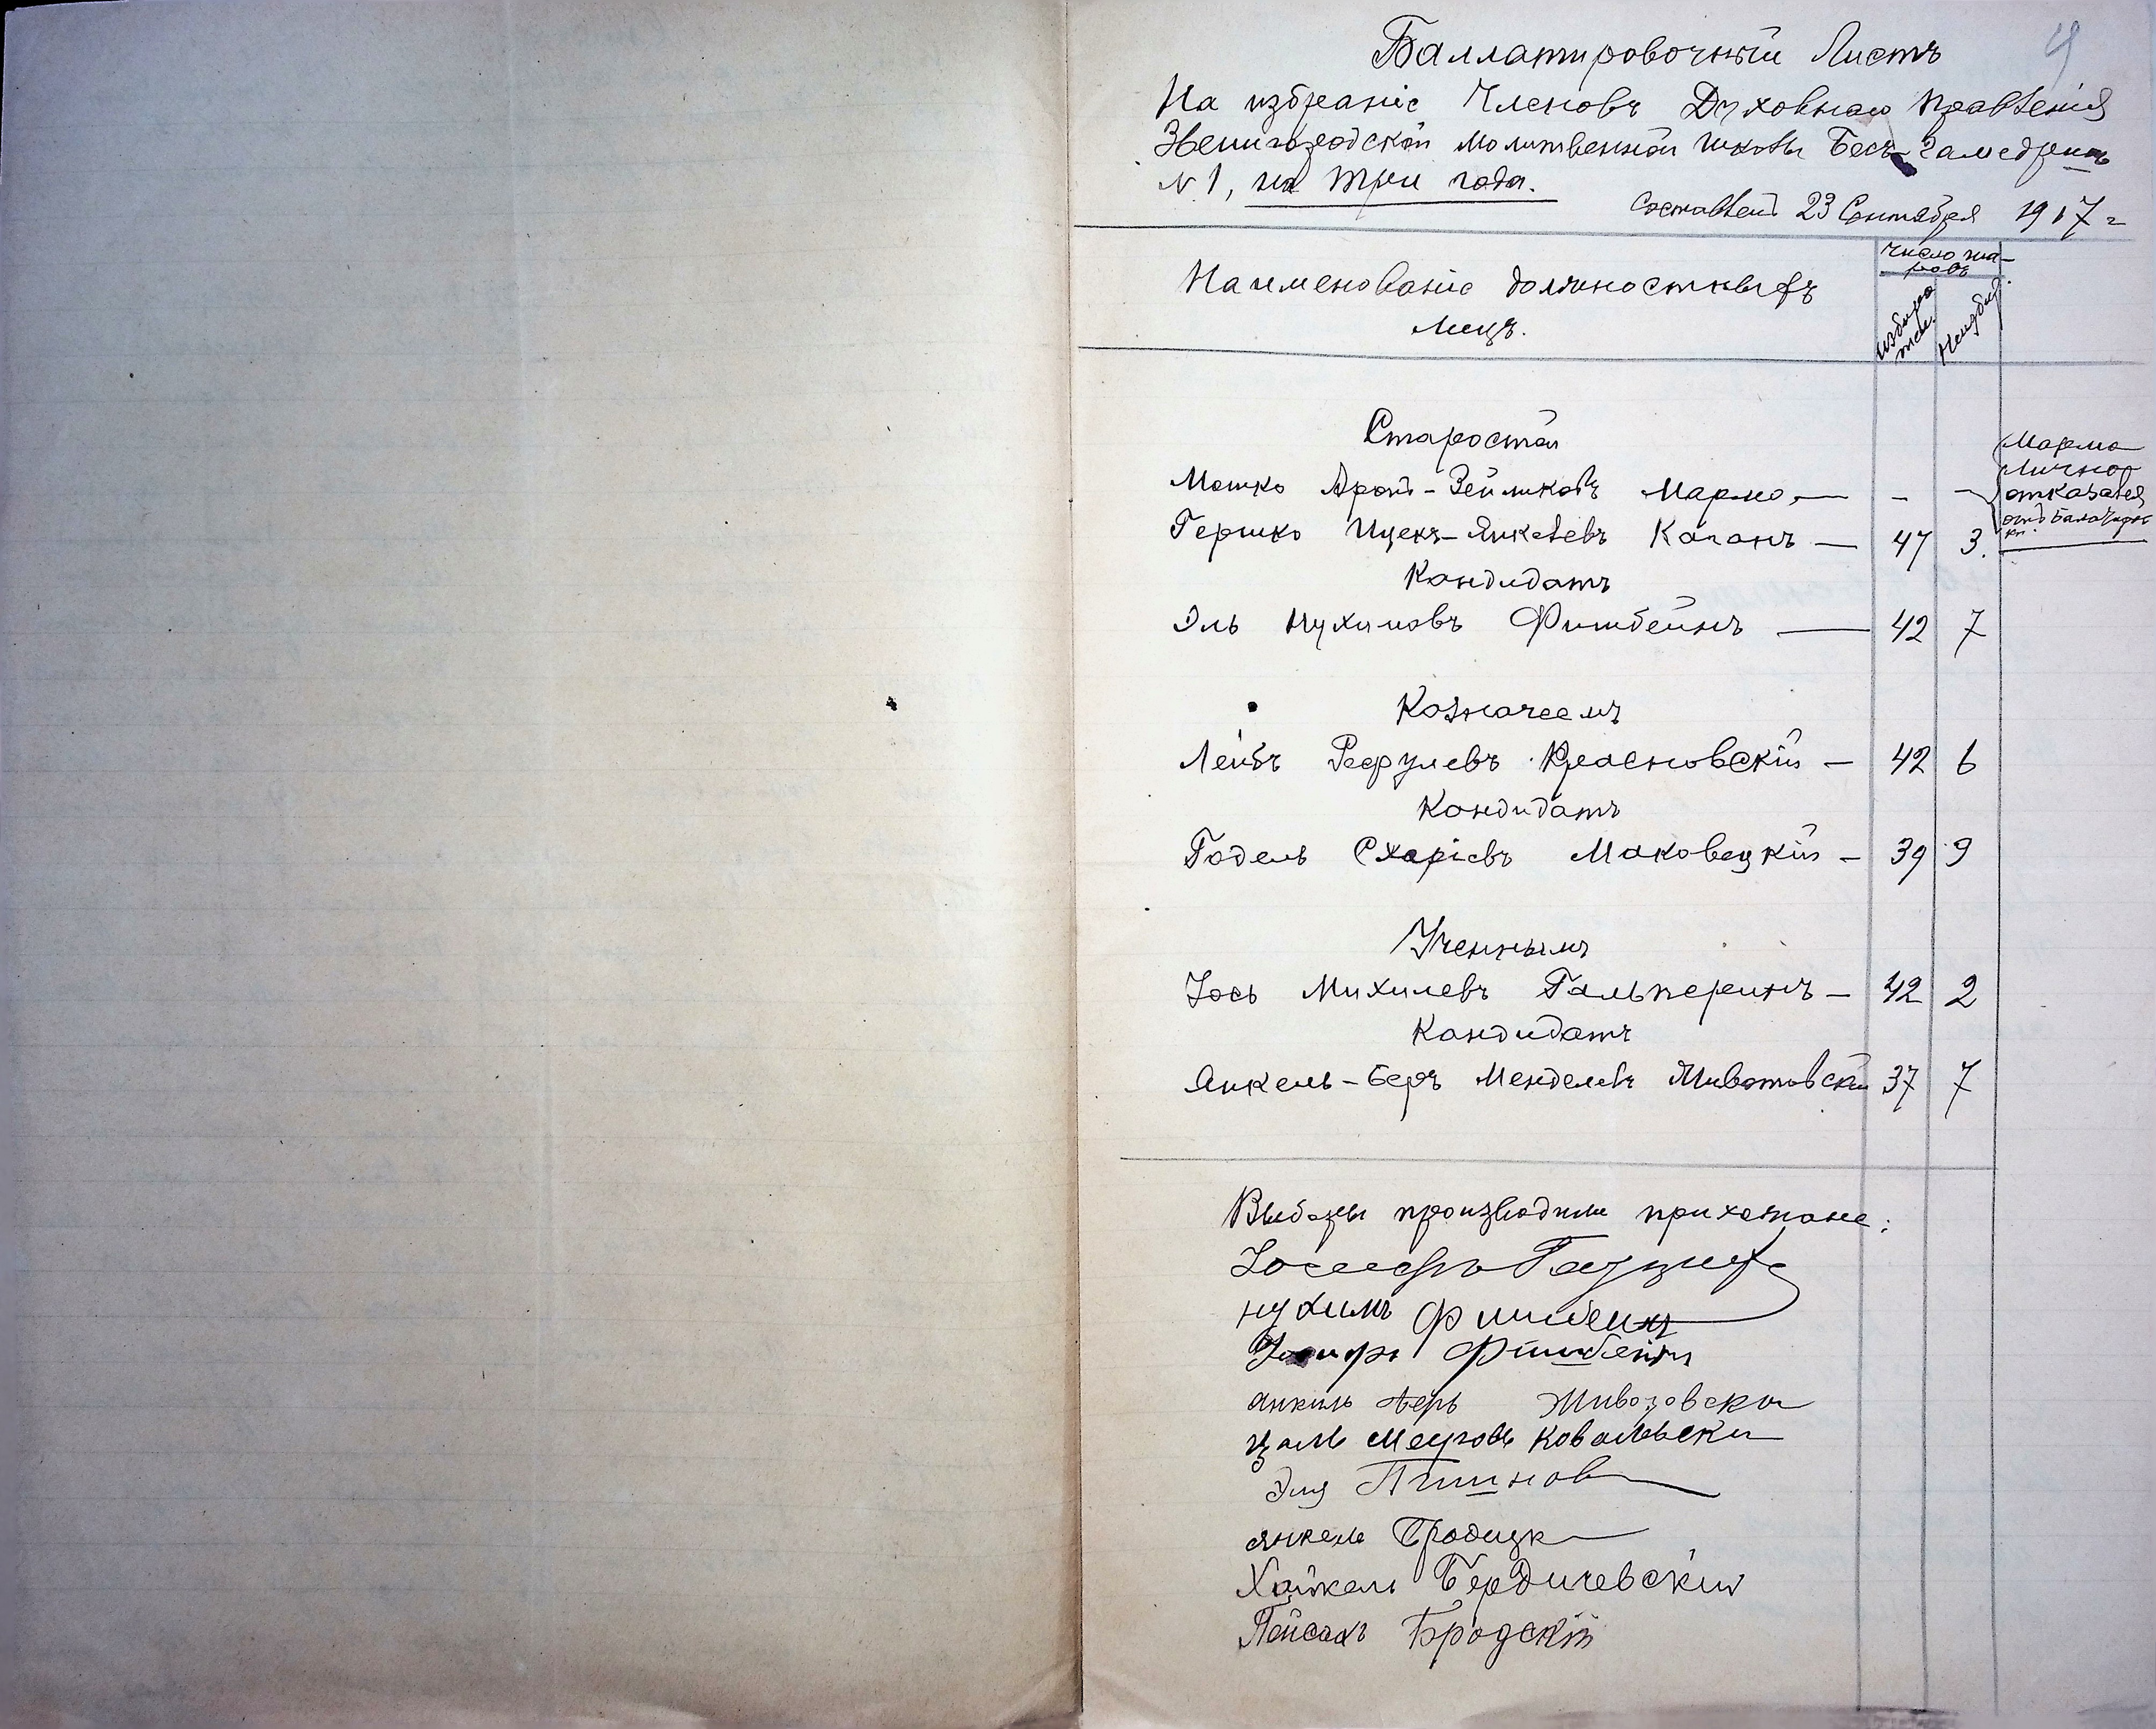 Баллатировочный Листъ
На избраніе Членовъ Духовнаго Правленія
Звенигородской молитвенной школы Бесъ-Гамедришъ
N 1, на три года.
Составленъ 23 Сентября 1917 г
Наименованіе должностныхъ
лицъ.
Число ша-
ровъ
избира
тел.
Неизбир.
Старостой
Мошко Аронъ-Зейликовъ Мармо — - -
Мармо
Лично
отказался
отъ балатиров
ки.
Гершко Ицекъ-Янкелевъ Каганъ — 47 3.
Кандидатъ
Эль Нухимовъ Фишбейнъ — 42 7
Казначеемъ
Лейбъ Рефулевъ Красновскій — 42 6
Кандидатъ
Годель Схаріевъ Маковецкій — 39 9
Ученнымъ
Іось Михилевъ Гальперинъ — 42 2
Кандидатъ
Янкель-Беръ Менделевъ Животовскій 37 7
Выборы производили прихожане:
Іосифъ
нухимъ Фишбейнъ
Фишбейнъ
анкиль беръ Живозовски
цаль меуговъ Ковальски
Эля
янкель Бродицк
Хайкель Бердичевскій
Пейсахъ Бродскій